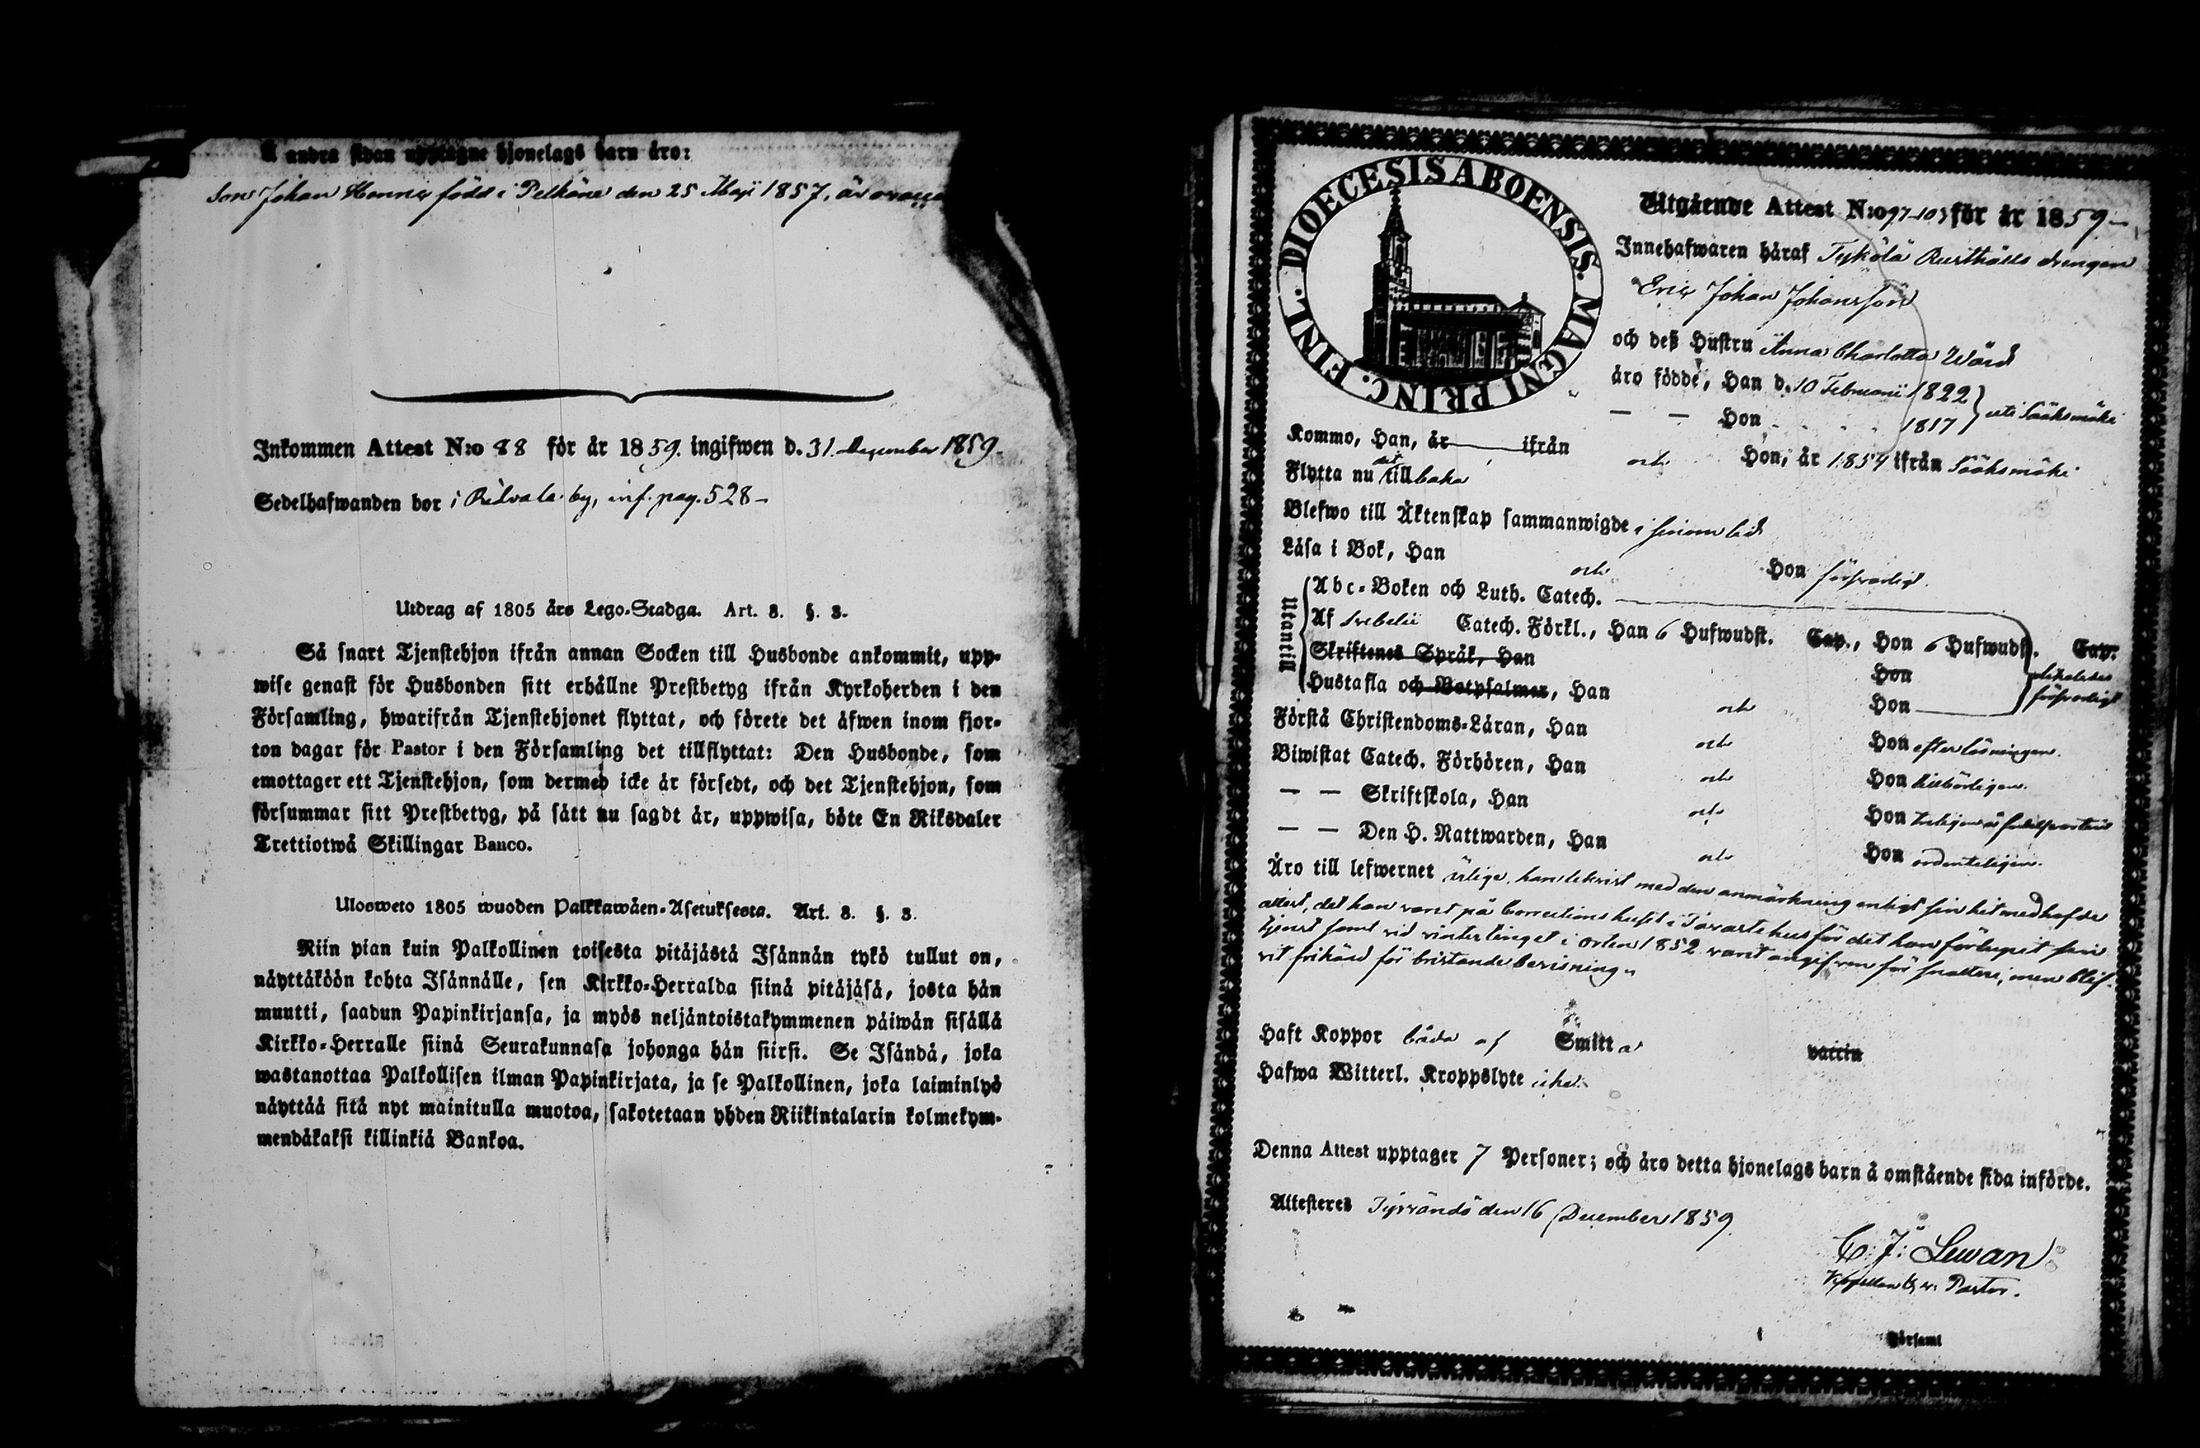 Å andra sidan upptagne hjonelags barn äro:
Son Johan Henric född i Pelkäne den 25 Maji 1857, är
Inkommen Attest N:o 88 för år 1859. ingifwen d. 31 December 1859.
Sedelhafwanden bor i Ridvala by, inf. pag. 528 –
Utdrag af 1805 års Lego-Stadga. Art. 8. §. 3.
Så snart Tjenstehjon ifrån annan Socken till Husbonde ankommit, upp-
wise genast för Husbonden sitt erhållne Prestbetyg ifrån Kyrkoherden i den
Församling, hwarifrån Tjenstehjonet flyttat, och förete det äfwen inom fjor-
ton dagar för Pastor i den Församling det tillflyttat: Den Husbonde, som
emottager ett Tjenstehjon, som dermed icke är försedt, och det Tjenstehjon, som
försummar sitt Prestbetyg, på sätt nu sagdt är, uppwisa, böte En Riksdaler
Trettiotwå Skillingar Banco.
Ulosweto 1805 wuoden Palkkawäen-Asetuksesta. Art. 8. §. 3.
Niin pian kuin Palkollinen toisesta pitäjästä Isännän tykö tullut on,
näyttäköön kohta Isännälle, sen Kirkko-Herralda siinä pitäjäsä, josta hän
muutti, saadun Papinkirjansa, ja myös neljäntoistakymmenen päiwän sisällä
Kirkko-Herralle siinä Seurakunnasa johonga hän siirsi. Se Isändä, joka
wastanottaa Palkollisen ilman Papinkirjata, ja se Palkollinen, joka laiminlyö
näyttää sitä nyt mainitulla muotoa, sakotetaan yhden Riikintalarin kolmekym-
mendäkaksi killinkiä Bankoa.
DIOECESIS ABOENSIS. MAGNI PRINC. FINL.
Utgående Attest N:o 97-103 för år 1859 –
Innehafwaren häraf Tykölä Rusthålls drengen
Eric Johan Johansson
och deß Hustru Anna Charlotta Wärd
äro födde, Han d. 10 Februarii 1822 } uti Sääksmäki
— — Hon 1817
Kommo, Han, år ifrån och Hon, år 1854 ifrån Sääksmäki
Flytta nu dit tillbaka
Blefwo till Äktenskap sammanwigde
Läsa i Bok, Han och Hon försvarligt.
Utantill
Abc-Boken och Luth. Catech.
Af Svebelii Catech. Förkl., Han 6 Hufwudst. Cap., Hon 6 Hufwudst. Cap.
Skriftenes Språk, Han Hon likaledes
Hustafla och Botpsalmer, Han och Hon försvarligt
Förstå Christendoms-Läran, Han och Hon efter läsningen.
Biwistat Catech. Förhören, Han och Hon tillbörligen.
— — Skriftskola, Han och Hon
— — Den H. Nattwarden, Han och Hon ordenteligen.
Äro till lefwernet ärlige, han med den anmärkning enligt sin hit medhafde
attest, det han varit på Corrections huset i Tavastehus för det han förlupit sin
tjenst samt vid vintertinget i orten 1852 varit angifven för snatteri, men blef-
vit frikänd för bristande bevisning.
Haft Koppor båda af Smitta vaccin
Hafwa Witterl. Kroppslyte icke.
Denna Attest upptager 7 Personer; och äro detta hjonelags barn å omstående sida införde.
Attesteres Tyrväntö den 16 December 1859.
C. J. Lewan
Pastor.
Församl